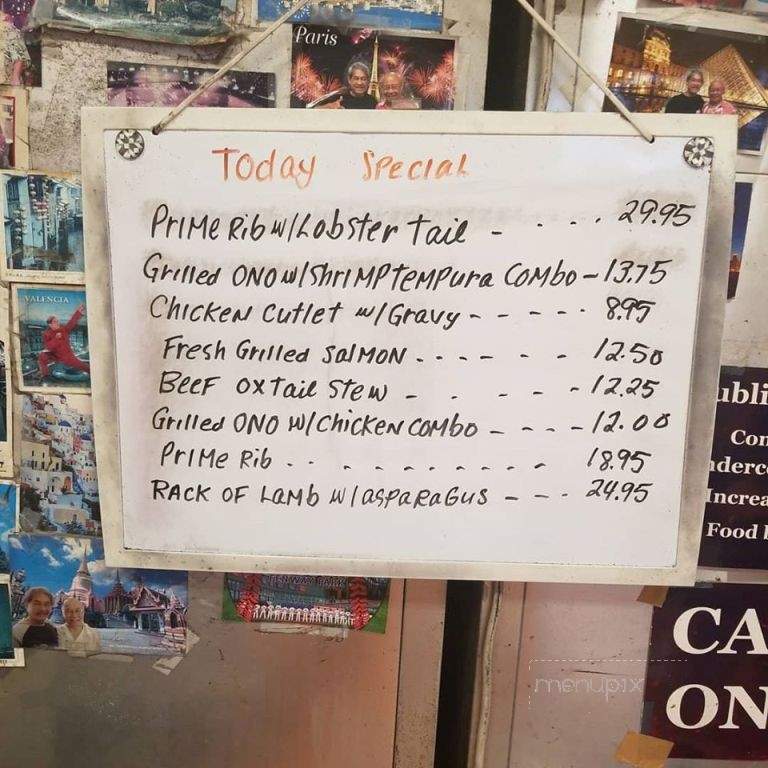 Paris
Today Special
Prime Rib w/Lobster Tail - . . . 29.95
Grilled ONO w/Shrimp Tempura Combo - 13.75
Chicken Cutlet w/Gravy - - - - - 8.95
Fresh Grilled Salmon . . - - - - 12.50
Beef Oxtail Stew - . . - - - 12.25
Grilled ONO w/Chicken Combo - - - - 12.00
Prime Rib . . . - - - - - - - 18.95
Rack of Lamb w/asparagus - - - 24.95
VALENCIA
ubli
Con
nderco
Increa
Food
FENWAY PARK
CA
ON
menupix